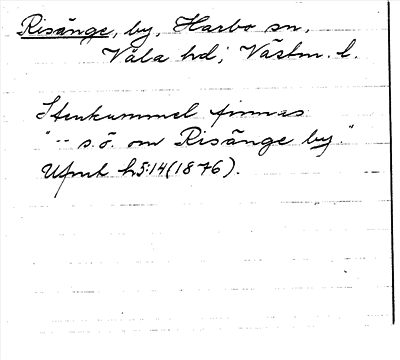 Risänge, by, Harbo sn,
Våla hd; Västm. l.
Stenkummel finnas
"-- s.ö. om Risänge by."
Ufmt h5:14(1876).